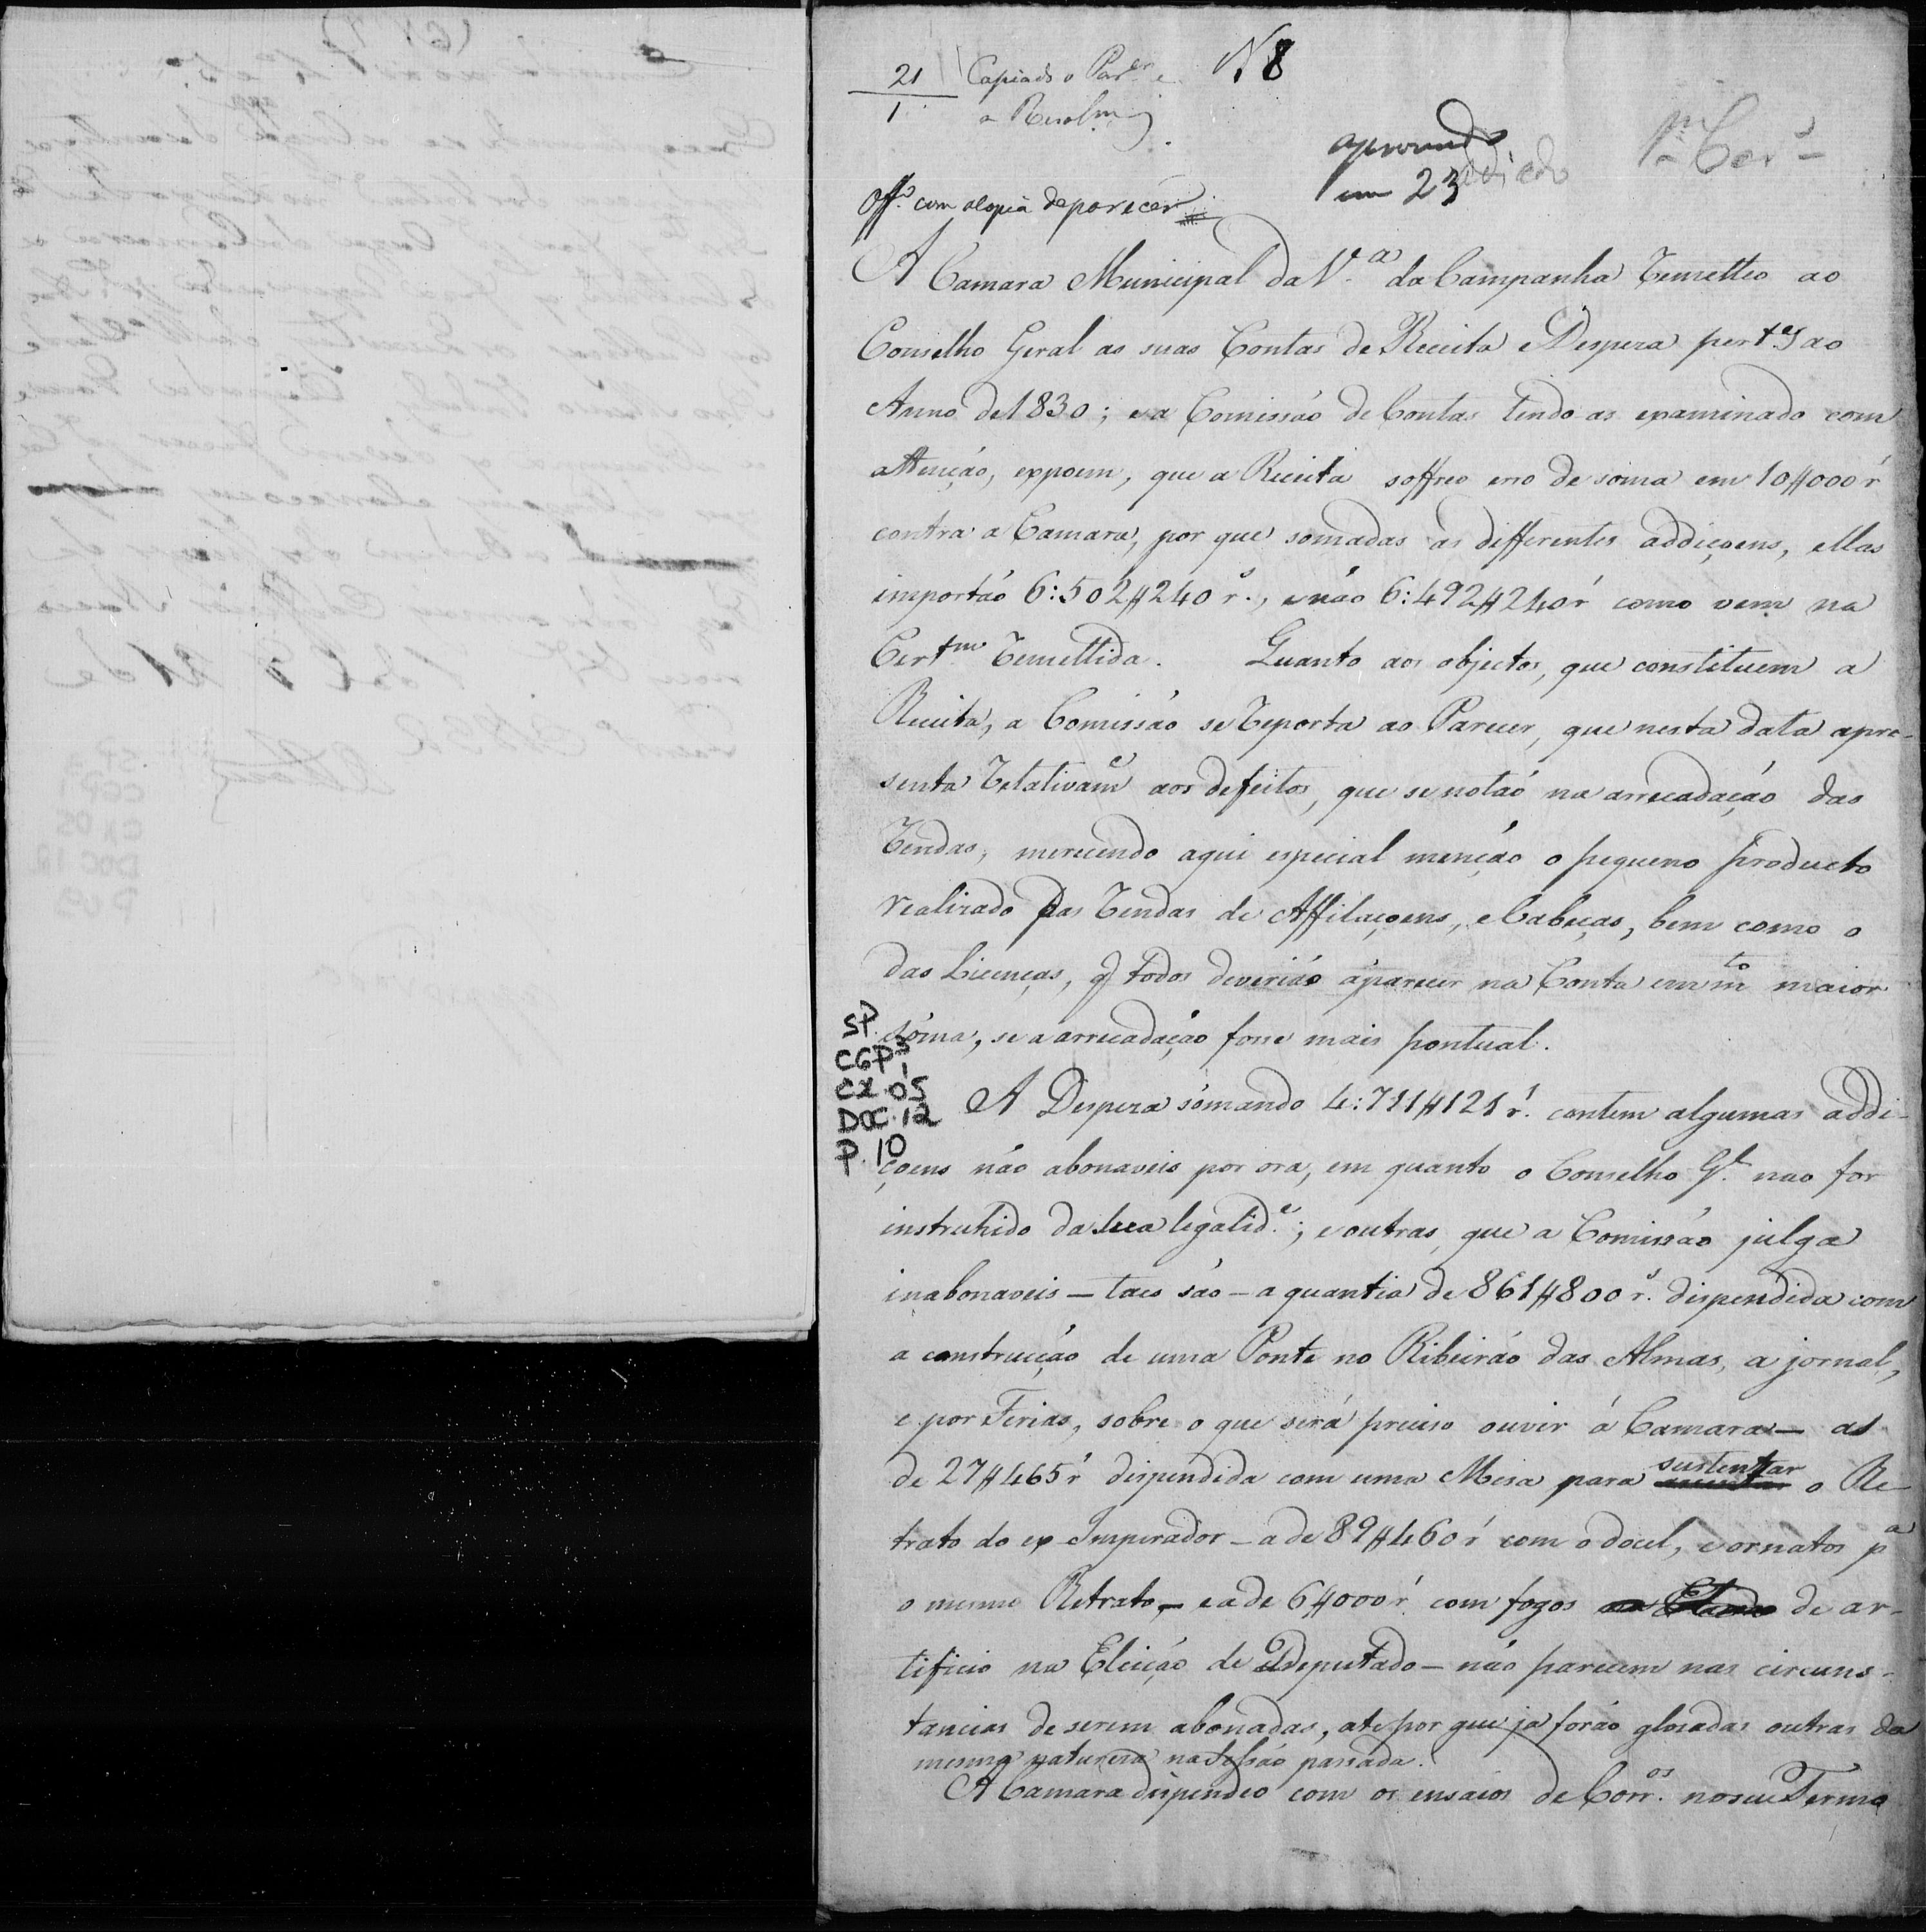 21 Copiado o Par.er e N 8
1 a Resolm
approvado
em 23
adiado
Off.o com acopia deparecer
A Camara Municipal da V.a da Campanha remetteo ao
Conselho Geral as suas Contas de Receita e Despeza pert.es ao
Anno de 1830; e a Comissão de Contas tendo as examinado com
attenção, expoem, que a Receita soffreo erro de soma em 10#000 r
contra a Camara, por que somadas as differentes addiçoens, ellas
importão 6:502#240 r.s, e não 6:492#240 r como vem na
Certm remettida. Quanto aos objectos, que constituem a
Receita, a Comissão se reporta ao Parecer, que nesta data apre-
senta relativam.e aos defeitos, que se notão na arrecadação das
rendas, merecendo aqui especial menção o pequeno producto
realizado das rendas de Affilaçoens, e Cabeças, bem como o
das Licenças, q todos deverião aparecer na Conta em m.to maior
sóma, se a arrecadação fosse mais pontual.
A Despeza sómando 4:711#121 r.s contem algumas addi-
çoens não abonaveis por ora, em quanto o Conselho G.l nao for
instruhido da sua legalid.e; e outras, que a Comissão julga
inabonaveis — taes são — a quantia de 861#800 r.s dispendida com
a construcção de uma Ponte no Ribeirão das Almas, a jornal,
e por Ferias, sobre o que será preciso ouvir á Camara — as
de 27#465 r dispendida com uma Mesa para sustentar o Re-
trato do ex Imperador — a de 89#460 r com o docel, e ornatos p.a
o mesmo Retrato — e a de 6#000 r. com fogos de ar-
tificio na Eleição de Deputado — não parecem nas circuns-
tancias de serem abonadas, ate por que ja forão glosadas outras da
mesma natureza na Sessão passada.
A Camara dispendeo com os ensaios de Corr.os no seu Termo
SP
CGP 1
CX. 05
DOC. 12
P. 10